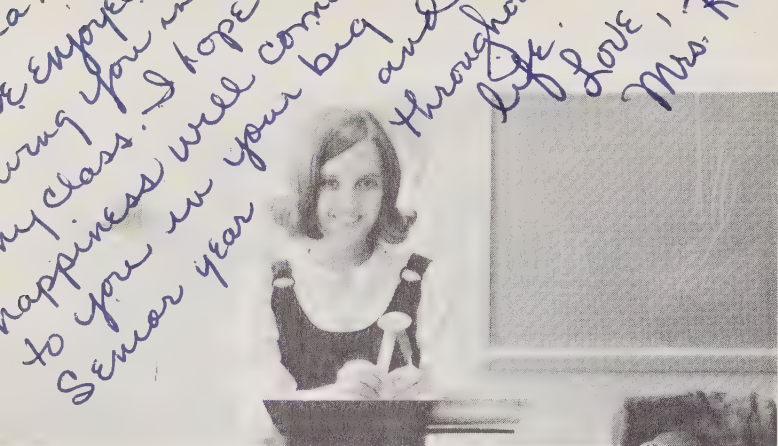 enjoyed
you in
my class. I hope
happiness will come
to you in your big
Senior year and
throughout
life.
Love,
Mrs.